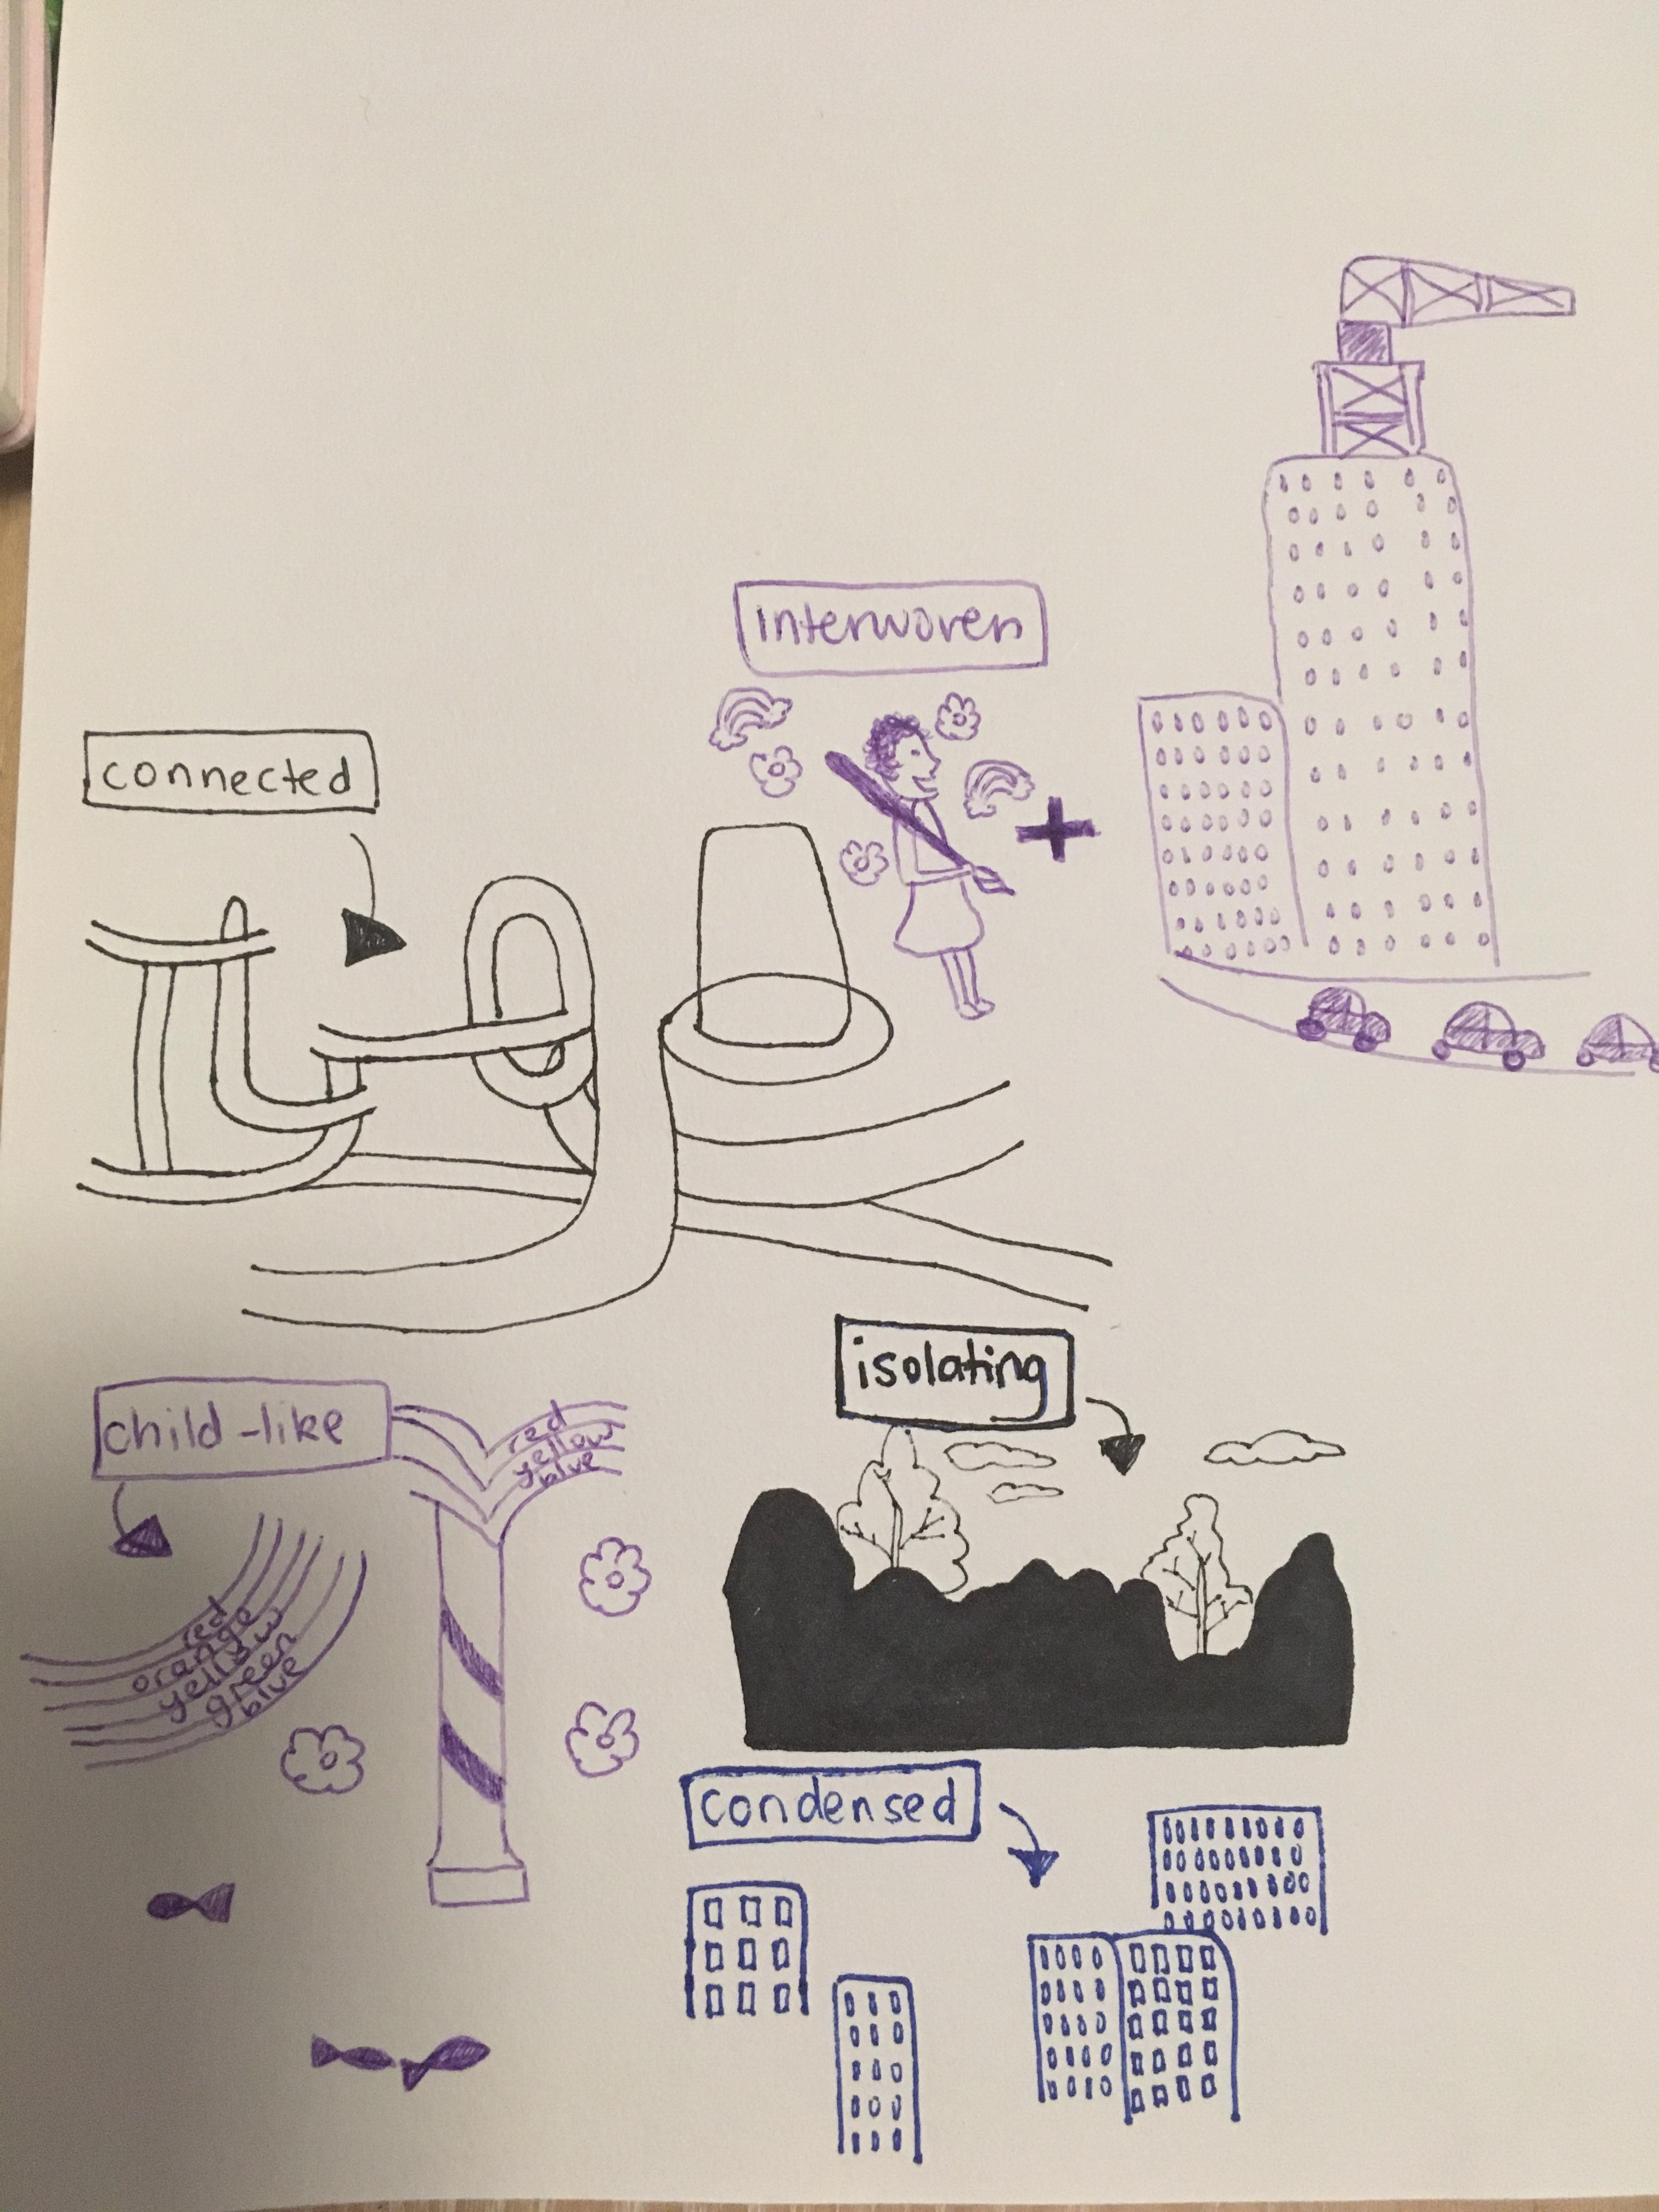 interwoven
connected
isolating
child-like
red
yellow
blue
red
orange
yellow
green
blue
condensed